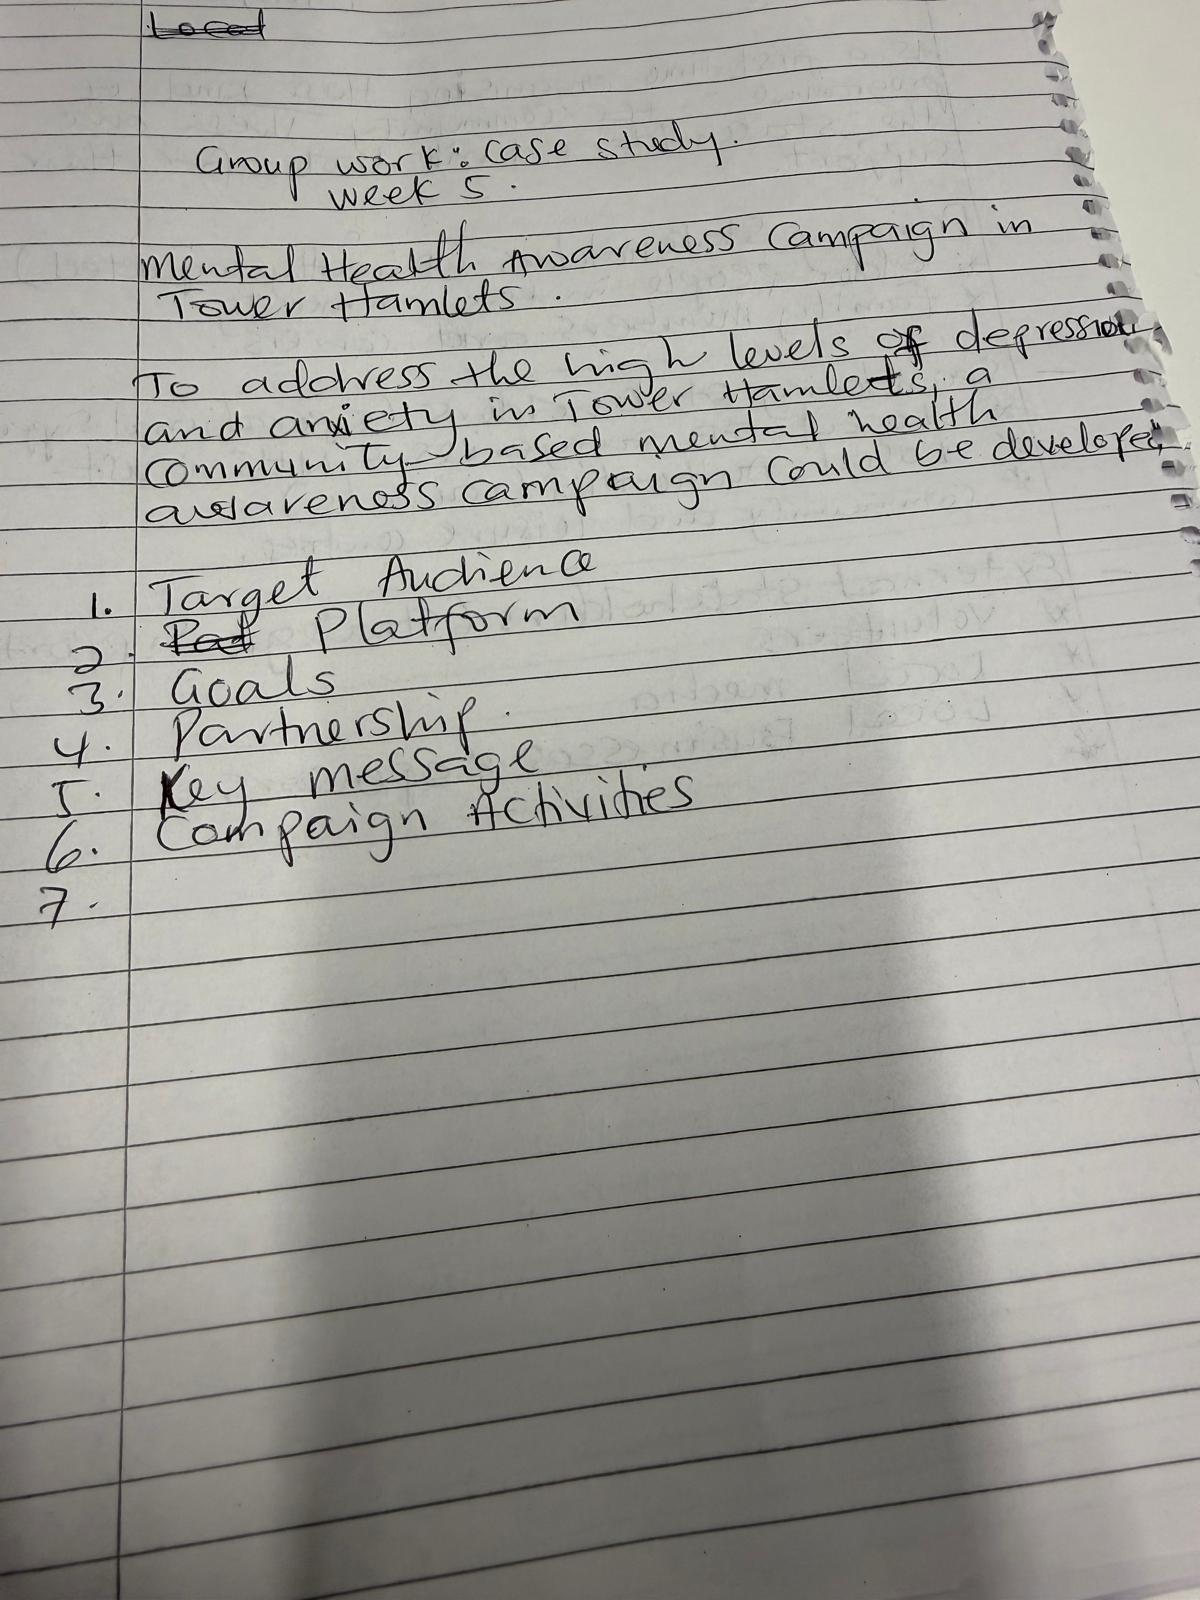 Local
Group work: case study.
week 5.
Mental Health Awareness Campaign in
Tower Hamlets.
To address the high levels of depression
and anxiety in Tower Hamlets, a
community-based mental health
awareness campaign could be developed.
1. Target Audience
2. Platform
3. Goals
4. Partnership.
5. Key message
6. Campaign Activities
7.